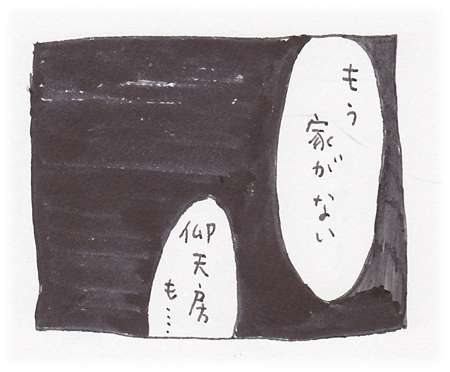 もう
家がない
仰天房
も……